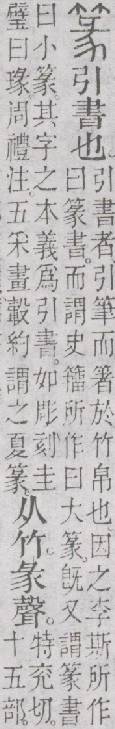 篆引書也。
引書者、引筆而箸於竹帛也。因之李斯所作
曰篆書。而謂史籒所作曰大篆。旣又謂篆書
曰小篆。其字之本義爲引書。如彫刻圭
璧曰瑑。周禮注。五采畫轂約謂之夏篆。
从竹。彖聲。
特兗切。
十五部。